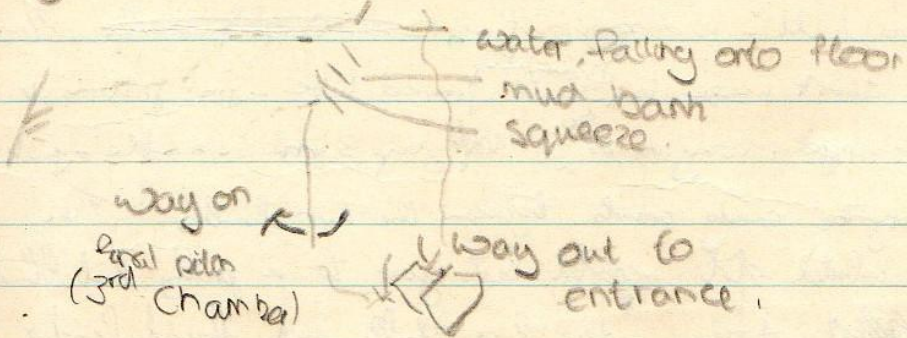 water, falling onto floor
mud bank
squeeze.
way on
final pitch
(3rd Chamber)
way out to
entrance.